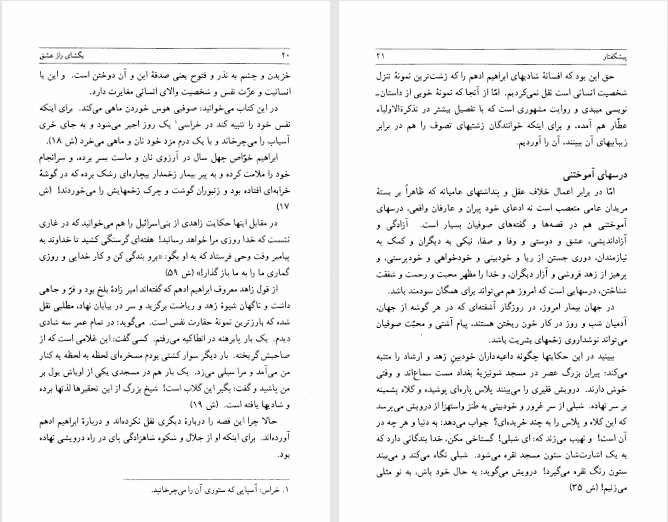 ۲۰ بگشای راز عشق
خزیدن و چشم به نذر و فتوح یعنی صدقهٔ این و آن دوختن است. و این با
انسانیت و عزّت نفس و شخصیت والای انسانی مغایرت دارد.
در این کتاب می‌خوانید: صوفیی هوس خوردن ماهی می‌کند. برای اینکه
نفس خود را تنبیه کند در خراسی۱ یک روز اجیر می‌شود و به جای خری
آسیاب را می‌چرخاند و با یک درم مزد خود نان و ماهی می‌خرد (ش ۱۸).
ابراهیم خوّاص چهل سال در آرزوی نان و ماست بسر برده، و سرانجام
خود را ملامت کرده و به پیر بیمار زخمدار بیچاره‌ای رشک برده که در گوشهٔ
خرابه‌ای افتاده بود و زنبوران گوشت و چرک زخمهایش را می‌خوردند! (ش
۱۷)
در مقابل اینها حکایت زاهدی از بنی‌اسرائیل را هم می‌خوانید که در غاری
نشست که خدا روزی مرا خواهد رسانید! هفته‌ای گرسنگی کشید تا خداوند به
پیامبر وقت وحی فرستاد که به او بگو: «برو بندگی کن و کار خدایی و روزی
گماری ما را به ما باز گذار!» (ش ۵۹)
از قول زاهد معروف ابراهیم ادهم که گفته‌اند امیر زادهٔ بلخ بود و فرّ و جاهی
داشت و ناگهان شیوهٔ زهد و ریاضت برگزید و سر در بیابان نهاد، مطلبی نقل
شده که بارزترین نمونهٔ حقارت نفس است. می‌گوید: در تمام عمر سه شادی
دیدم. یک بار پابرهنه در انطاکیه می‌رفتم. کسی گفت: این غلامی است که از
صاحبش گریخته. بار دیگر سوار کشتی بودم مسخره‌ای لحظه به لحظه به کنار
من می‌آمد و مرا سیلی می‌زد. یک بار هم در مسجدی یکی از اوباش بول بر
من پاشید و گفت: بگیر این گلاب است! شیخ بزرگ از این تحقیرها لذتها برده
و شادیها یافته است. (ش ۱۹)
حالا چرا این قصه را دربارهٔ دیگری نقل نکرده‌اند و دربارهٔ ابراهیم ادهم
آورده‌اند. برای اینکه او از جلال و شکوه شاهزادگی پای در راه درویشی نهاده
بود.
۱. خراس: آسیایی که ستوری آن را می‌چرخانید.
پیشگفتار ۲۱
حق این بود که افسانهٔ شادیهای ابراهیم ادهم را که زشت‌ترین نمونهٔ تنزل
شخصیت انسانی است نقل نمی‌کردیم. امّا از آنجا که نمونهٔ خوبی از داستان‌ـ
نویسی میبدی و روایت مشهوری است که با تفصیل بیشتر در تذکرةالاولیاء
عطّار هم آمده، و برای اینکه خوانندگان زشتیهای تصوف را هم در برابر
زیباییهای آن ببینند، آن را آوردیم.
درسهای آموختنی
امّا در برابر اعمال خلاف عقل و پنداشتهای عامیانه که ظاهراً بر بستهٔ
مریدان عامی متعصب است نه ادعای خود پیران و عارفان واقعی، درسهای
آموختنی هم در قصه‌ها و گفته‌های صوفیان بسیار است. آزادگی و
آزاداندیشی، عشق و دوستی و وفا و صفا، نیکی به دیگران و کمک به
نیازمندان، دوری جستن از ریا و خودبینی و خودخواهی و خودپرستی، و
پرهیز از زهد فروشی و آزار دیگران، و خدا را مظهر محبت و رحمت و شفقت
شناختن، درسهایی است که امروز هم می‌تواند برای همگان سودمند باشد.
در جهان بیمار امروز، در روزگار آشفته‌ای که در هر گوشه از جهان،
آدمیان شب و روز در کار خون ریختن هستند، پیام آشتی و محبّت صوفیان
می‌تواند نوشداروی زخمهای بشریت باشد.
ببینید در این حکایتها چگونه داعیه‌داران خودبین زهد و ارشاد را متنبه
می‌کند: پیران بزرگ عصر در مسجد شونیزیهٔ بغداد مست سماع‌اند و وقتی
خوش دارند. درویش فقیری را می‌بینند پلاس پاره‌ای پوشیده و کلاه پشمینه
بر سر نهاده. شبلی از سر غرور و خودبینی به طنز واستهزا از درویش می‌پرسد
که این کلاه و پلاس را به چند خریده‌ای؟ جواب می‌دهد: به دنیا و هر چه در
آن است! و نهیب می‌زند که: ای شبلی! گستاخی مکن، خدا بندگانی دارد که
به یک اشارت‌شان ستون مسجد نقره می‌شود. شبلی نگاه می‌کند و می‌بیند
ستون رنگ نقره می‌گیرد! درویش می‌گوید: به حال خود باش، به تو مثلی
می‌زنیم! (ش ۳۵)